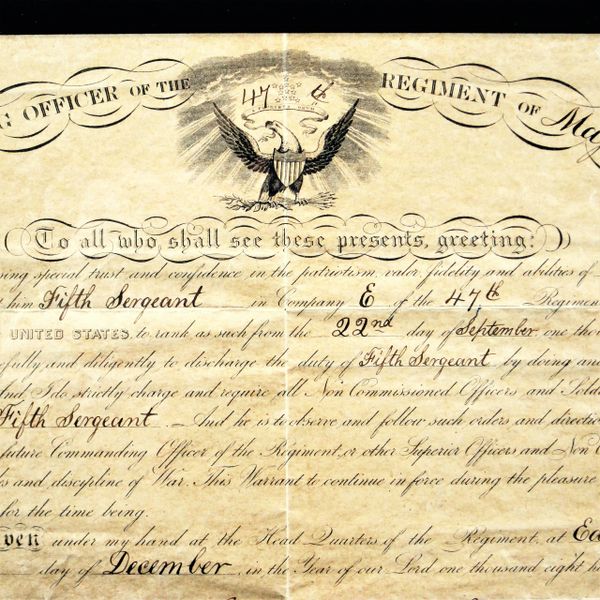 G OFFICER OF THE 47th REGIMENT OF Ma
To all who shall see these presents, greeting:
sing special trust and confidence, in the patriotism, valor, fidelity and abilities of
him Fifth Sergeant in Company E of the 47th Regimen
UNITED STATES, to rank as such from the 22nd day of September one thou
fully and diligently to discharge the duty of Fifth Sergeant by doing and
And, I do strictly charge and require all Non Commissioned Officers and Sold
Fifth Sergeant. And he is to observe and follow such orders and direction
future Commanding Officer of the Regiment, or other Superior Officers and Non C
s and discipline of War. This Warrant to continue in force during the pleasure
for the time being.
ven under my hand at the Head Quarters of the Regiment, at Ea
day of December, in the Year of our Lord one thousand eight h